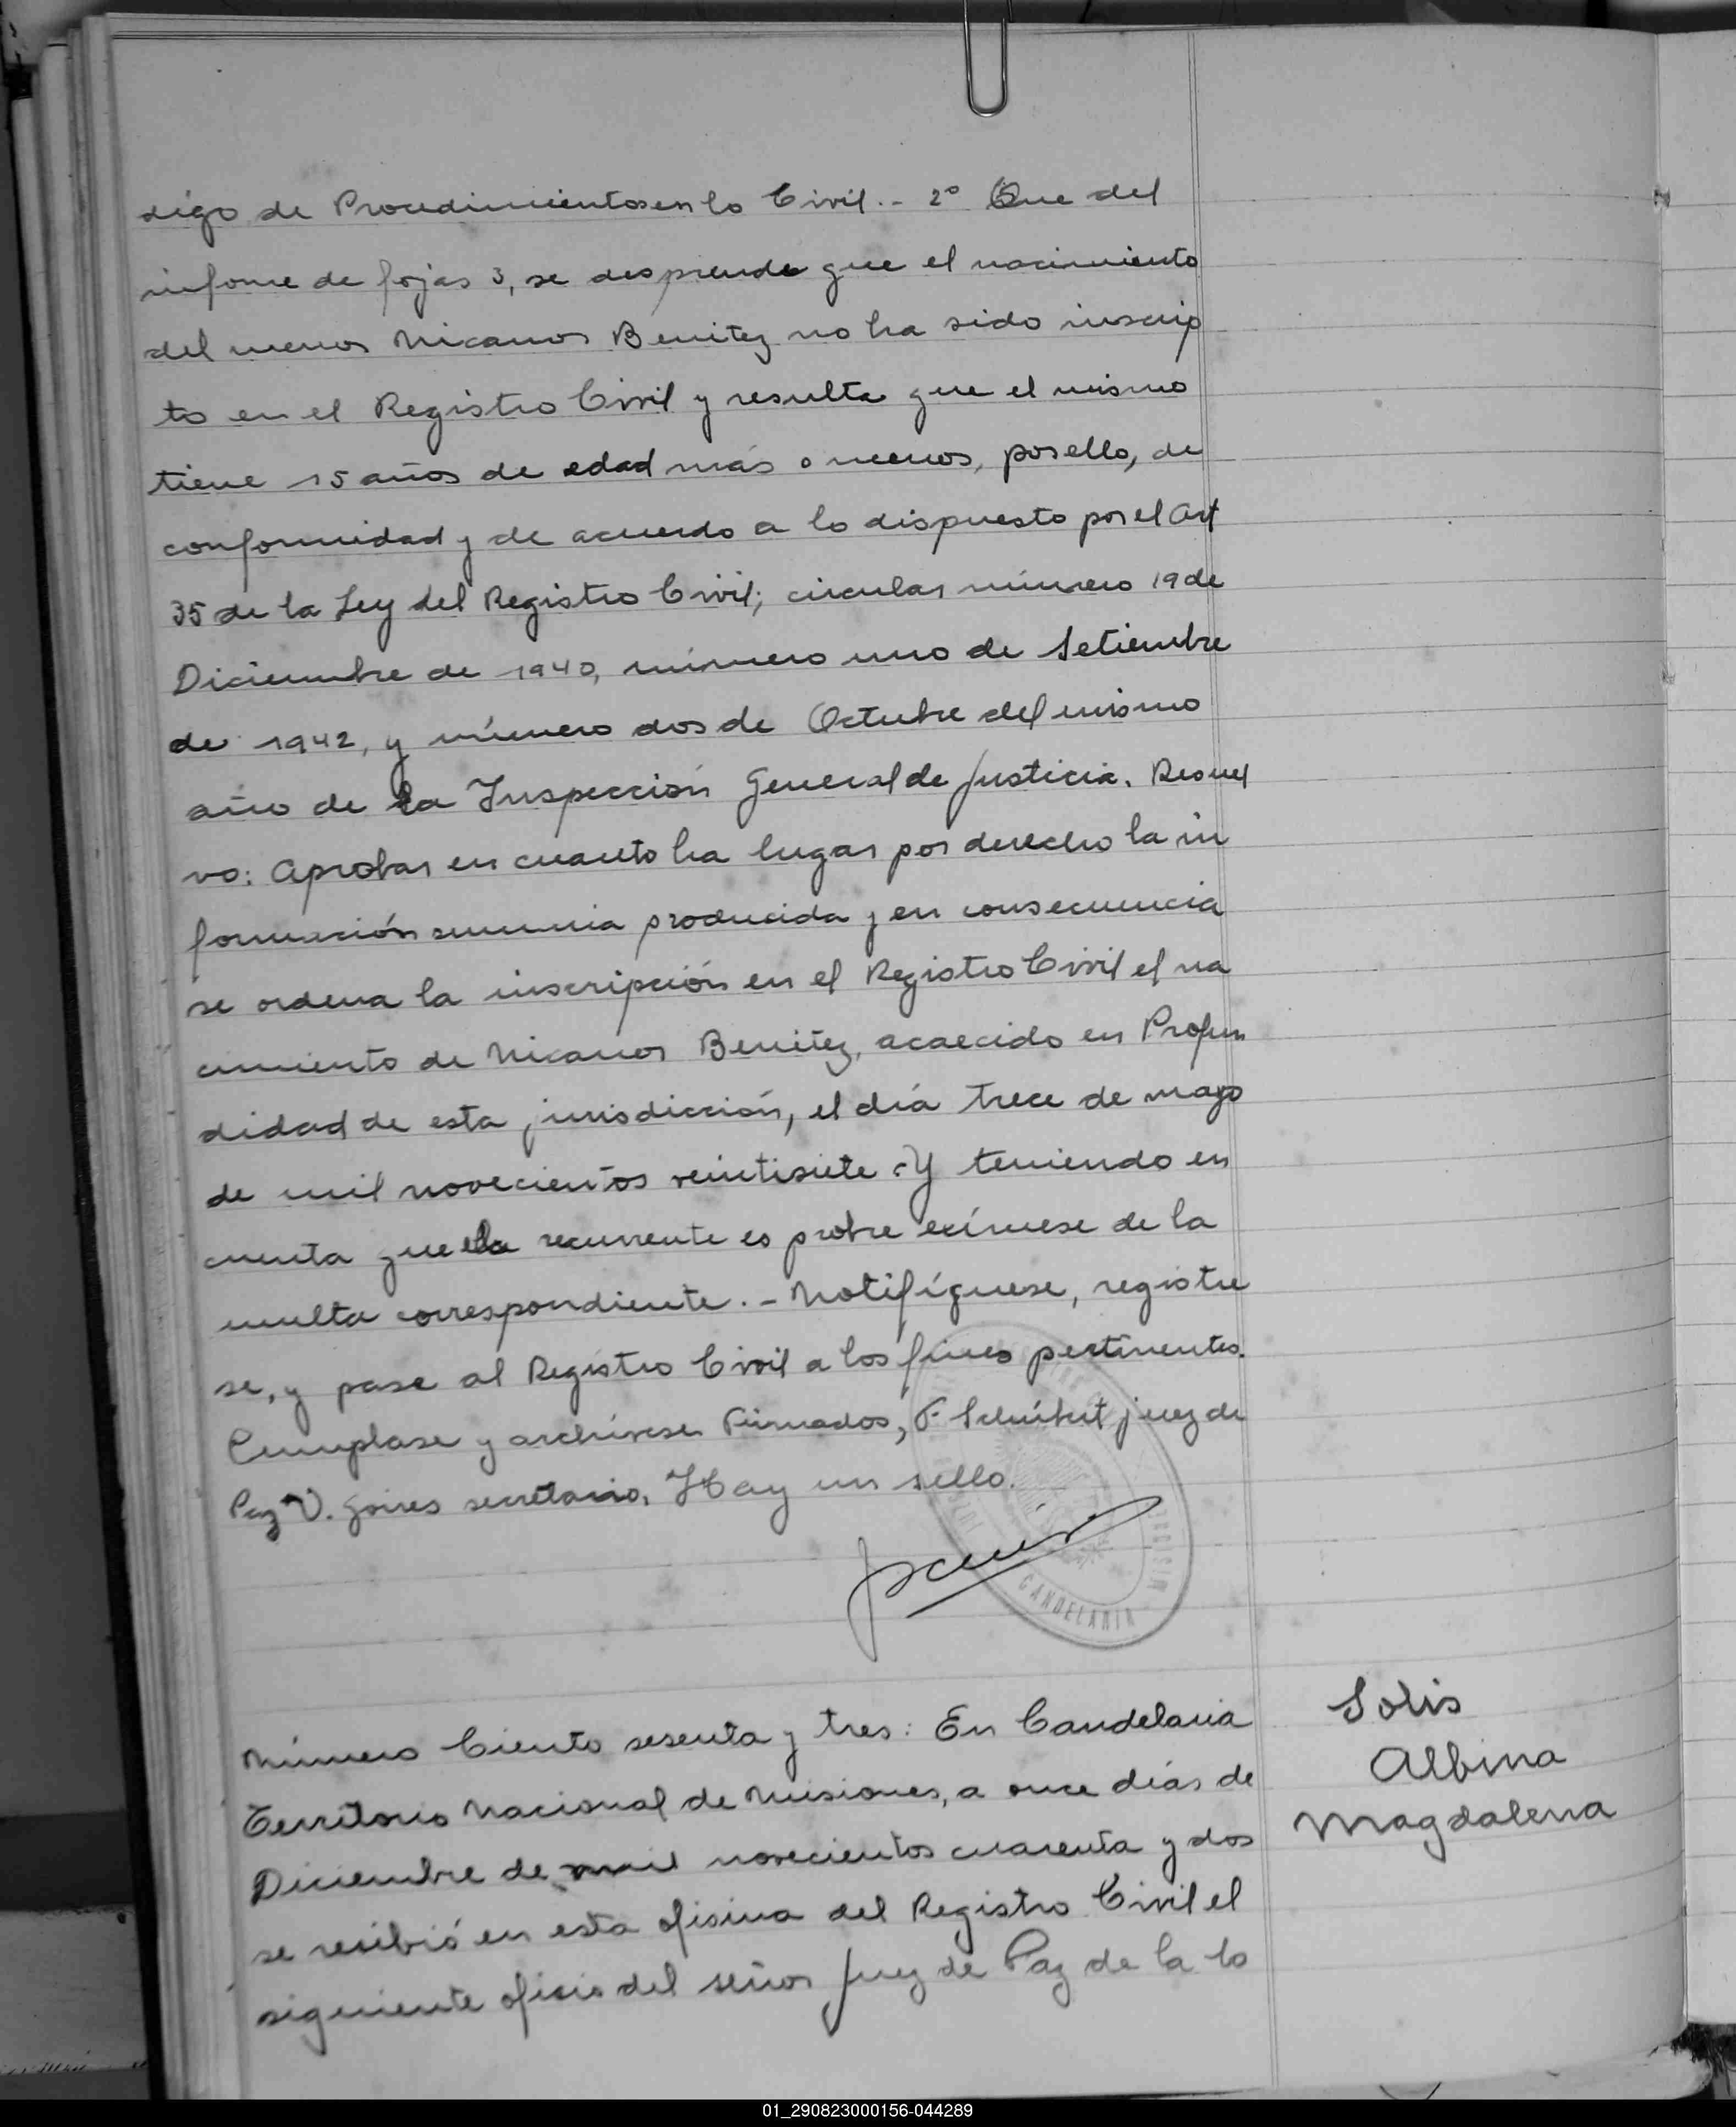 digo de Procedimientos en lo Civil.- 2º Que del
informe de fojas 3, se desprende que el nacimiento
del menor Nicanor Benitez no ha sido inscrip
to en el Registro Civil y resulta que el mismo
tiene 15 años de edad más o menos, por ello, de
conformidad y de acuerdo a lo dispuesto por el Art
35 de la Ley del Registro Civil; circular número 19 de
Diciembre de 1940, número uno de Setiembre
de 1942, y número dos de Octubre del mismo
año de la Inspección General de Justicia. Resuel
vo: Aprobar en cuanto ha lugar por derecho la in
formación sumaria producida y en consecuencia
se ordena la inscripción en el Registro Civil el na
cimiento de Nicanor Benitez, acaecido en Profun
didad de esta jurisdicción, el día trece de mayo
de mil novecientos veintisiete. Y teniendo en
cuenta que la recurrente es pobre exímese de la
multa correspondiente.- Notifíquese, registre
se, y pase al Registro Civil a los fines pertinentes.
Cumplase y archívese. Firmados, F. Schubert juez de
Paz V. Goires secretario. Hay un sello.
CANDELARIA
Número Ciento sesenta y tres: En Candelaria
Territorio Nacional de Misiones, a once días de
Diciembre de mil novecientos cuarenta y dos
se recibió en esta oficina del Registro Civil el
siguiente oficio del señor Juez de Paz de la lo
Solis
Albina
Magdalena
01_290823000156-044289